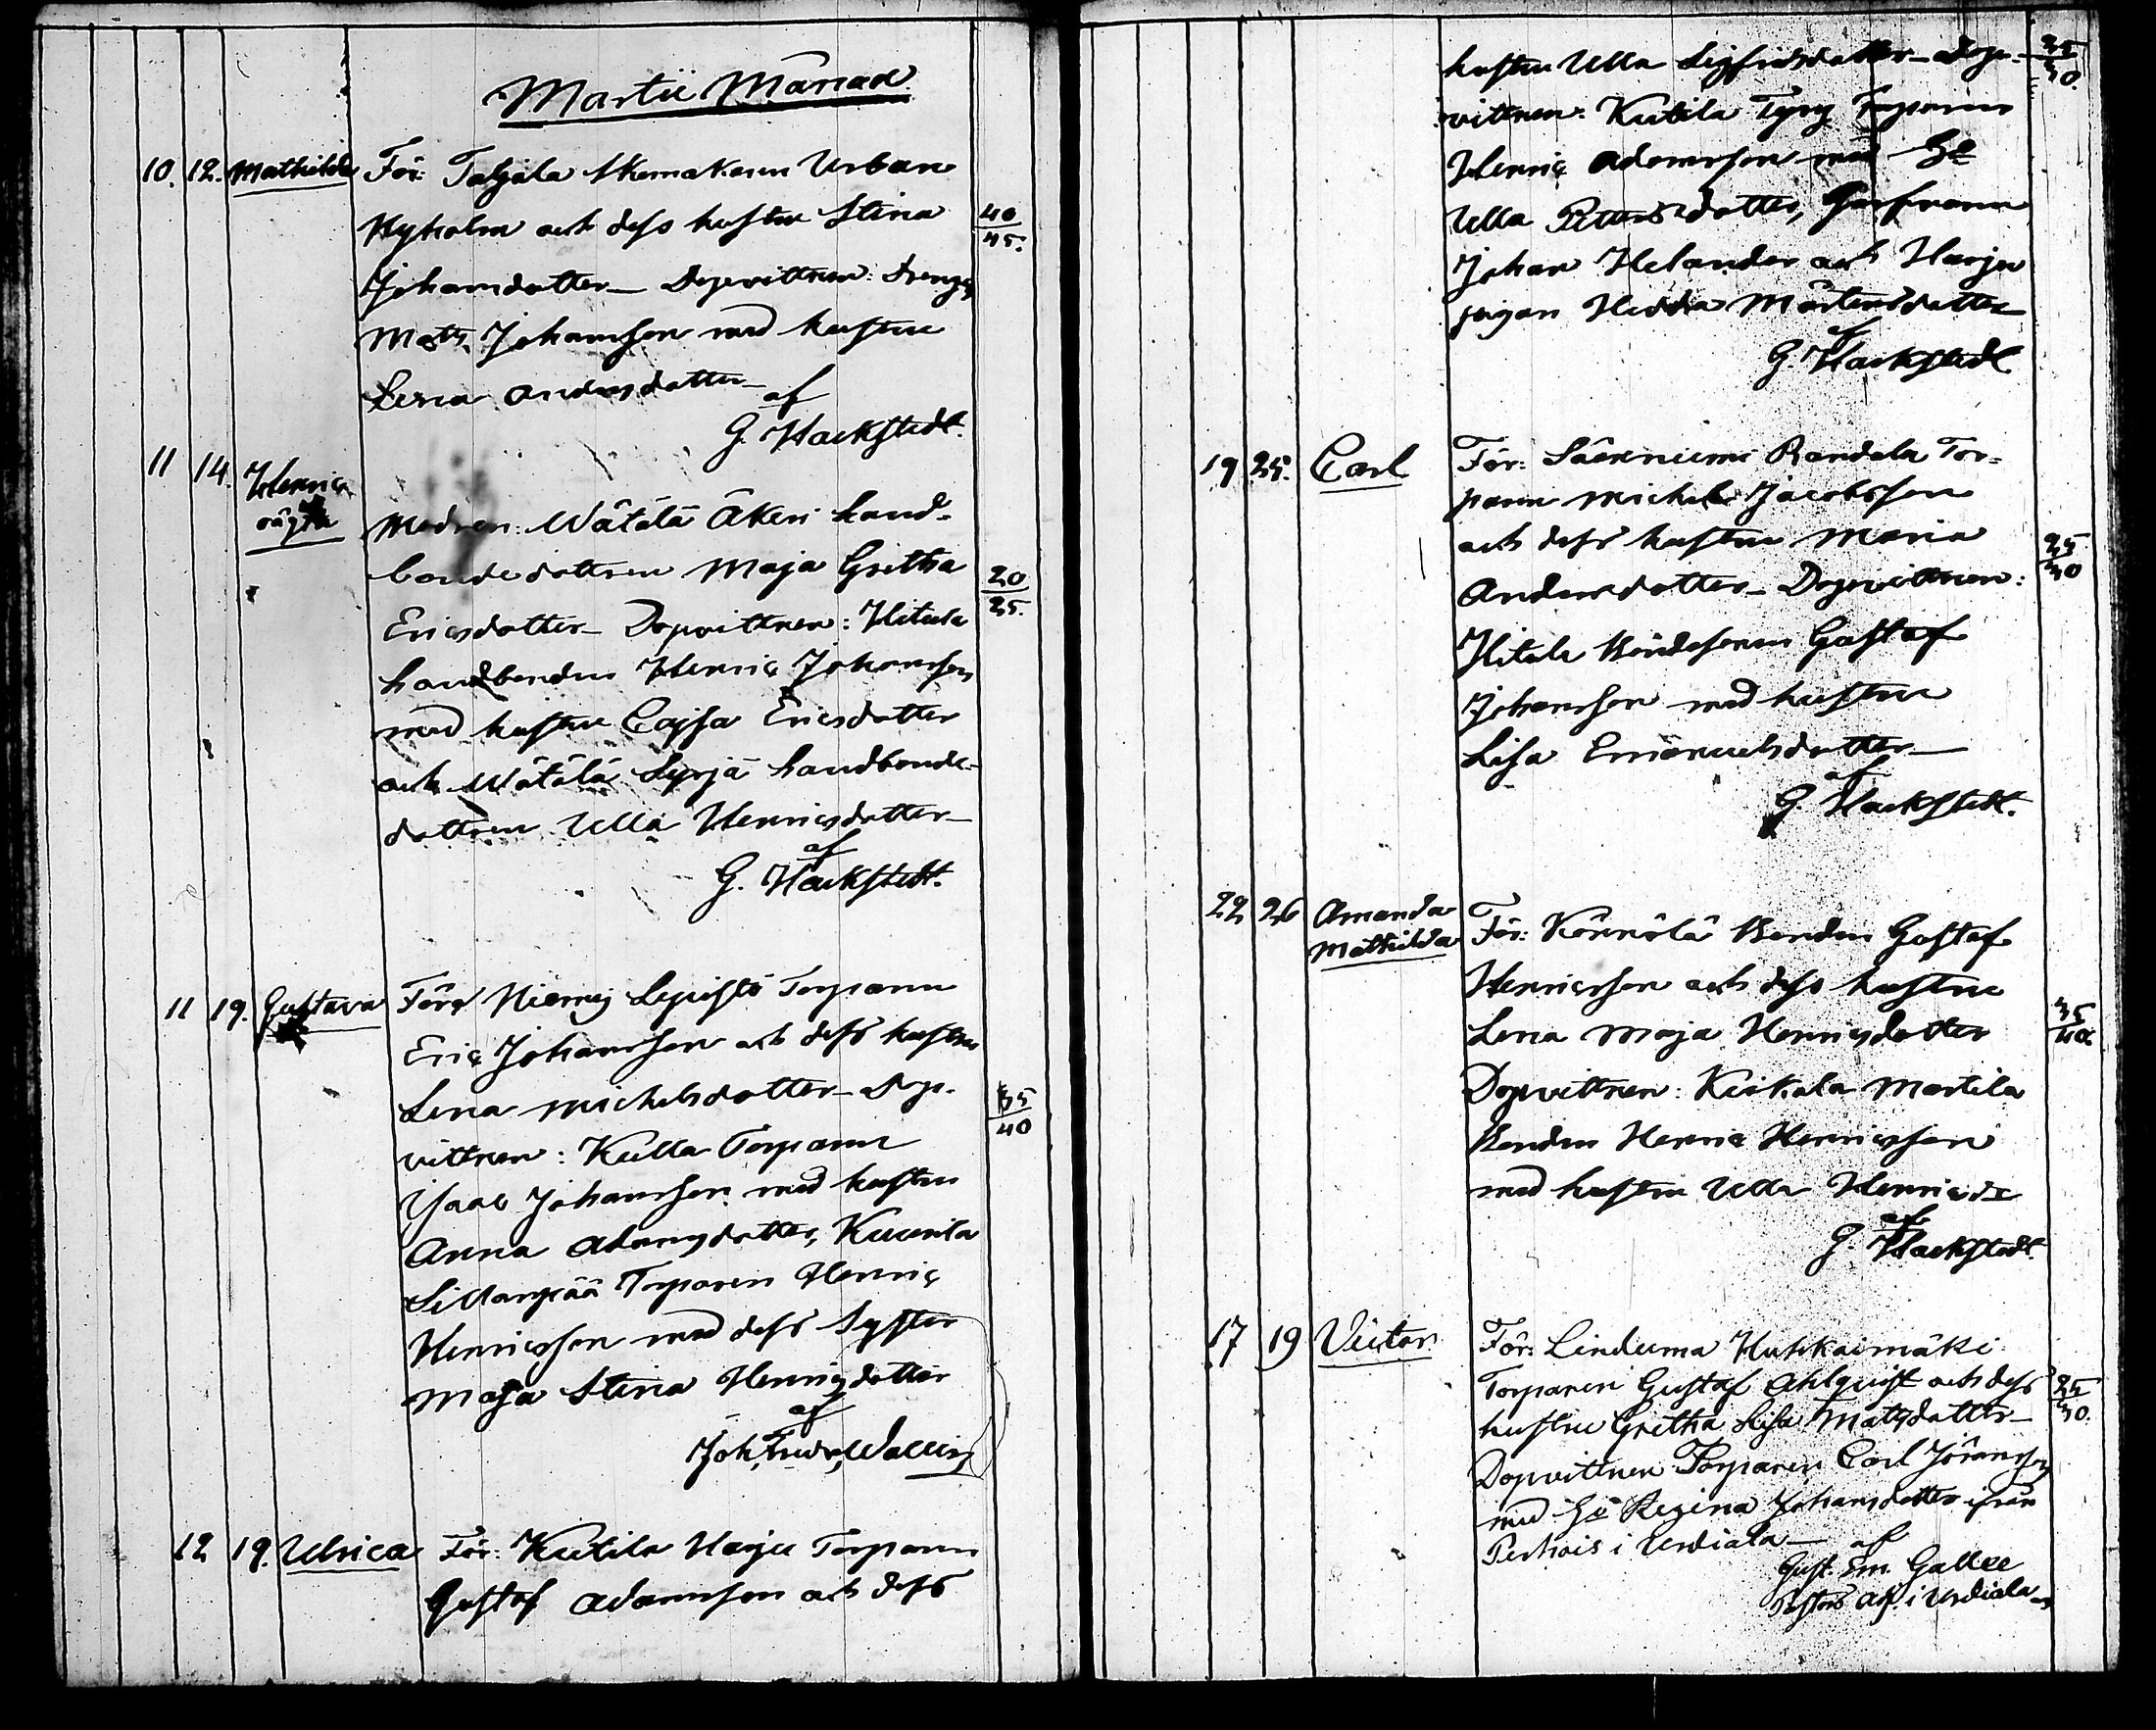 Martii Månad
10. 12. Mathilda För: Taljala Skomakaren Urban
Nyholm och dess hustru Stina 40/45.
Johansdotter Dopvittnen: Drengen
Matts Johansson med hustru
Lena Andersdotter
af
G. Hackstedt.
11 14. Henric oägta
Modren: Wätälä Äkeri Landbondedottren Maja Gretha 20/25.
Ericsdotter Dopvittnen: Hitula
Landbonden Henric Johansson
med hustru Cajsa Ericsdotter
och Wätälä Syrjä Landbonde-
dottren Ulla Henricsdotter
af
G. Hackstedt.
11 19. Gustava Före Niemis Lepistö Torparen
Eric Johansson och dess hustru
Lena Michelsdotter Dop- 35/40
vittnen: Kulla Torparen
Isaac Johansson med hustru
Anna Adamsdotter, Kuurila
Sillanpää Torparen Henric
Henricsson med dess Syster
Maja Stina Henricsdotter
af
Joh. Fredr. Wallin
12 19. Ulrica För: Kutila Harju Torparen
Gustaf Adamsson och dess
hustru Ulla Sigfridsdotter Dop- 25/30.
vittnen: Kutila Torparen
Henric Adamsson med H
Ulla Pettersdotter,
Johan Helander och Harju
pigan Hedda Mårtensdotter
af
G. Hackstedt
19 25. Carl För: Sääxniemi Randala Tor-
paren Michel Jacobsson
och dess hustru Maria 25/30
Andersdotter Dopvittnen:
Hitula Bondesonen Gustaf
Johansson med hustru
Lisa Emanuelsdotter
af
G. Hackstedt.
22 26 Amanda Mathilda För: Könnölä Bonden Gustaf
Henricsson och dess hustru
Lena Maja Henricsdotter 35/40.
Dopvittnen: Keikala Martila
Bonden Henric Henricsson
med hustru Ulla Henricsdr
af
G. Hackstedt.
17 19 Victor För: Linduma Huhkaimäki
Torparen Gustaf Ahlquist och dess 25/30.
hustru Gretha Lisa Matsdotter
Dopvittnen Torparen Carl Jöransson
med H Regina Johansdotter ifrån
Perhois i Urdiala
af
Gust. Em. Gallee
Pastors Adj. i Urdiala